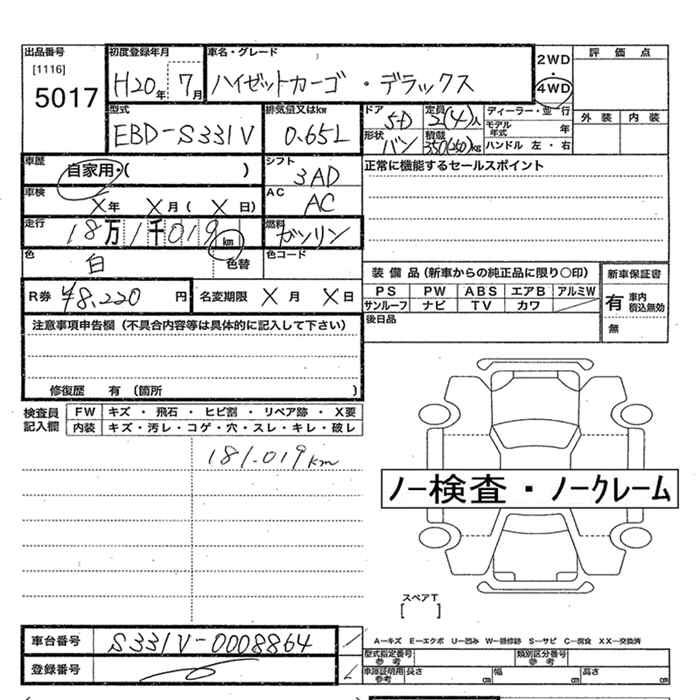 出品番号 初度登録年月 車名・グレード 評価点
[1116] 2WD
5017 H20年 7月 ハイゼットカーゴ・デラックス 4WD
外装 内装
型式 排気量又はkw ドア 定員 ディーラー・並行
EBD-S331V 0.65L 5D 2(4)人 モデル年式 年
形状 積載 ハンドル 左・右
バン 350(250)kg
車歴 シフト 正常に機能するセールスポイント
自家用・( ) 3AD
車検 AC
X年 X月 (X日) AC
走行 燃料
18万1千019km ガソリン
色 色替 色コード
白
装備品(新車からの純正品に限り〇印) 新車保証書
PS PW ABS エアB アルミW 有 車内積込無効
サンルーフ ナビ TV カワ 無
R券 ¥8,220円 名変期限 X月 X日
後日品
注意事項申告欄(不具合内容等は具体的に記入して下さい)
修復歴 有 (箇所 )
検査員記入欄 FW キズ・飛石・ヒビ割・リペア跡・X要
内装 キズ・汚レ・コゲ・穴・スレ・キレ・破レ
181.019km
ノー検査・ノークレーム
スペアT
[ ]
車台番号 S331V-0008864
A−キズ E−エクボ U−凹み W−補修跡 S−サビ C−腐食 XX−交換済
登録番号
型式指定番号 参考 類別区分番号 参考
車庫証明用 参考 長さ cm 幅 cm 高さ cm